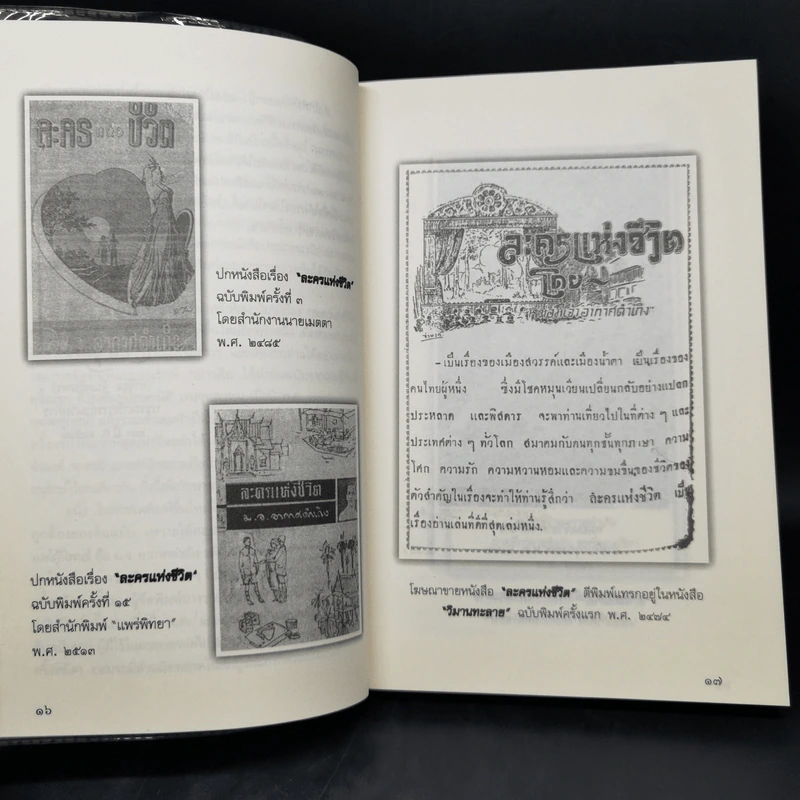 ละครแห่งชีวิต
ปกหนังสือเรื่อง "ละครแห่งชีวิต"
ฉบับพิมพ์ครั้งที่ ๓
โดยสำนักงานนายเมตตา
พ.ศ. ๒๔๘๕
ละครแห่งชีวิต
ม.จ. อากาศดำเกิง
ปกหนังสือเรื่อง "ละครแห่งชีวิต"
ฉบับพิมพ์ครั้งที่ ๑๕
โดยสำนักพิมพ์ "แพร่พิทยา"
พ.ศ. ๒๕๑๓
๑๖
ละครแห่งชีวิต
โดย
-เป็นเรื่องของเมืองสวรรค์และเมืองน้ำตา เป็นเรื่องของ
คนไทยผู้หนึ่ง ซึ่งมีโชคหมุนเวียนเปลี่ยนกลับอย่างแปลก
ประหลาด และพิสดาร จะพาท่านเที่ยวไปในที่ต่าง ๆ และ
ประเทศต่าง ๆ ทั่วโลก สมาคมกับคนทุกชั้นทุกภาษา ความ
โศก ความรัก ความหวานหอมและความขมขื่นของชีวิตของ
ตัวสำคัญในเรื่องจะทำให้ท่านรู้สึกว่า ละครแห่งชีวิต เป็น
เรื่องอ่านเล่นที่ดีที่สุดเล่มหนึ่ง.
โฆษณาขายหนังสือ "ละครแห่งชีวิต" ตีพิมพ์แทรกอยู่ในหนังสือ
"วิมานทะลาย" ฉบับพิมพ์ครั้งแรก พ.ศ. ๒๔๗๔
๑๗